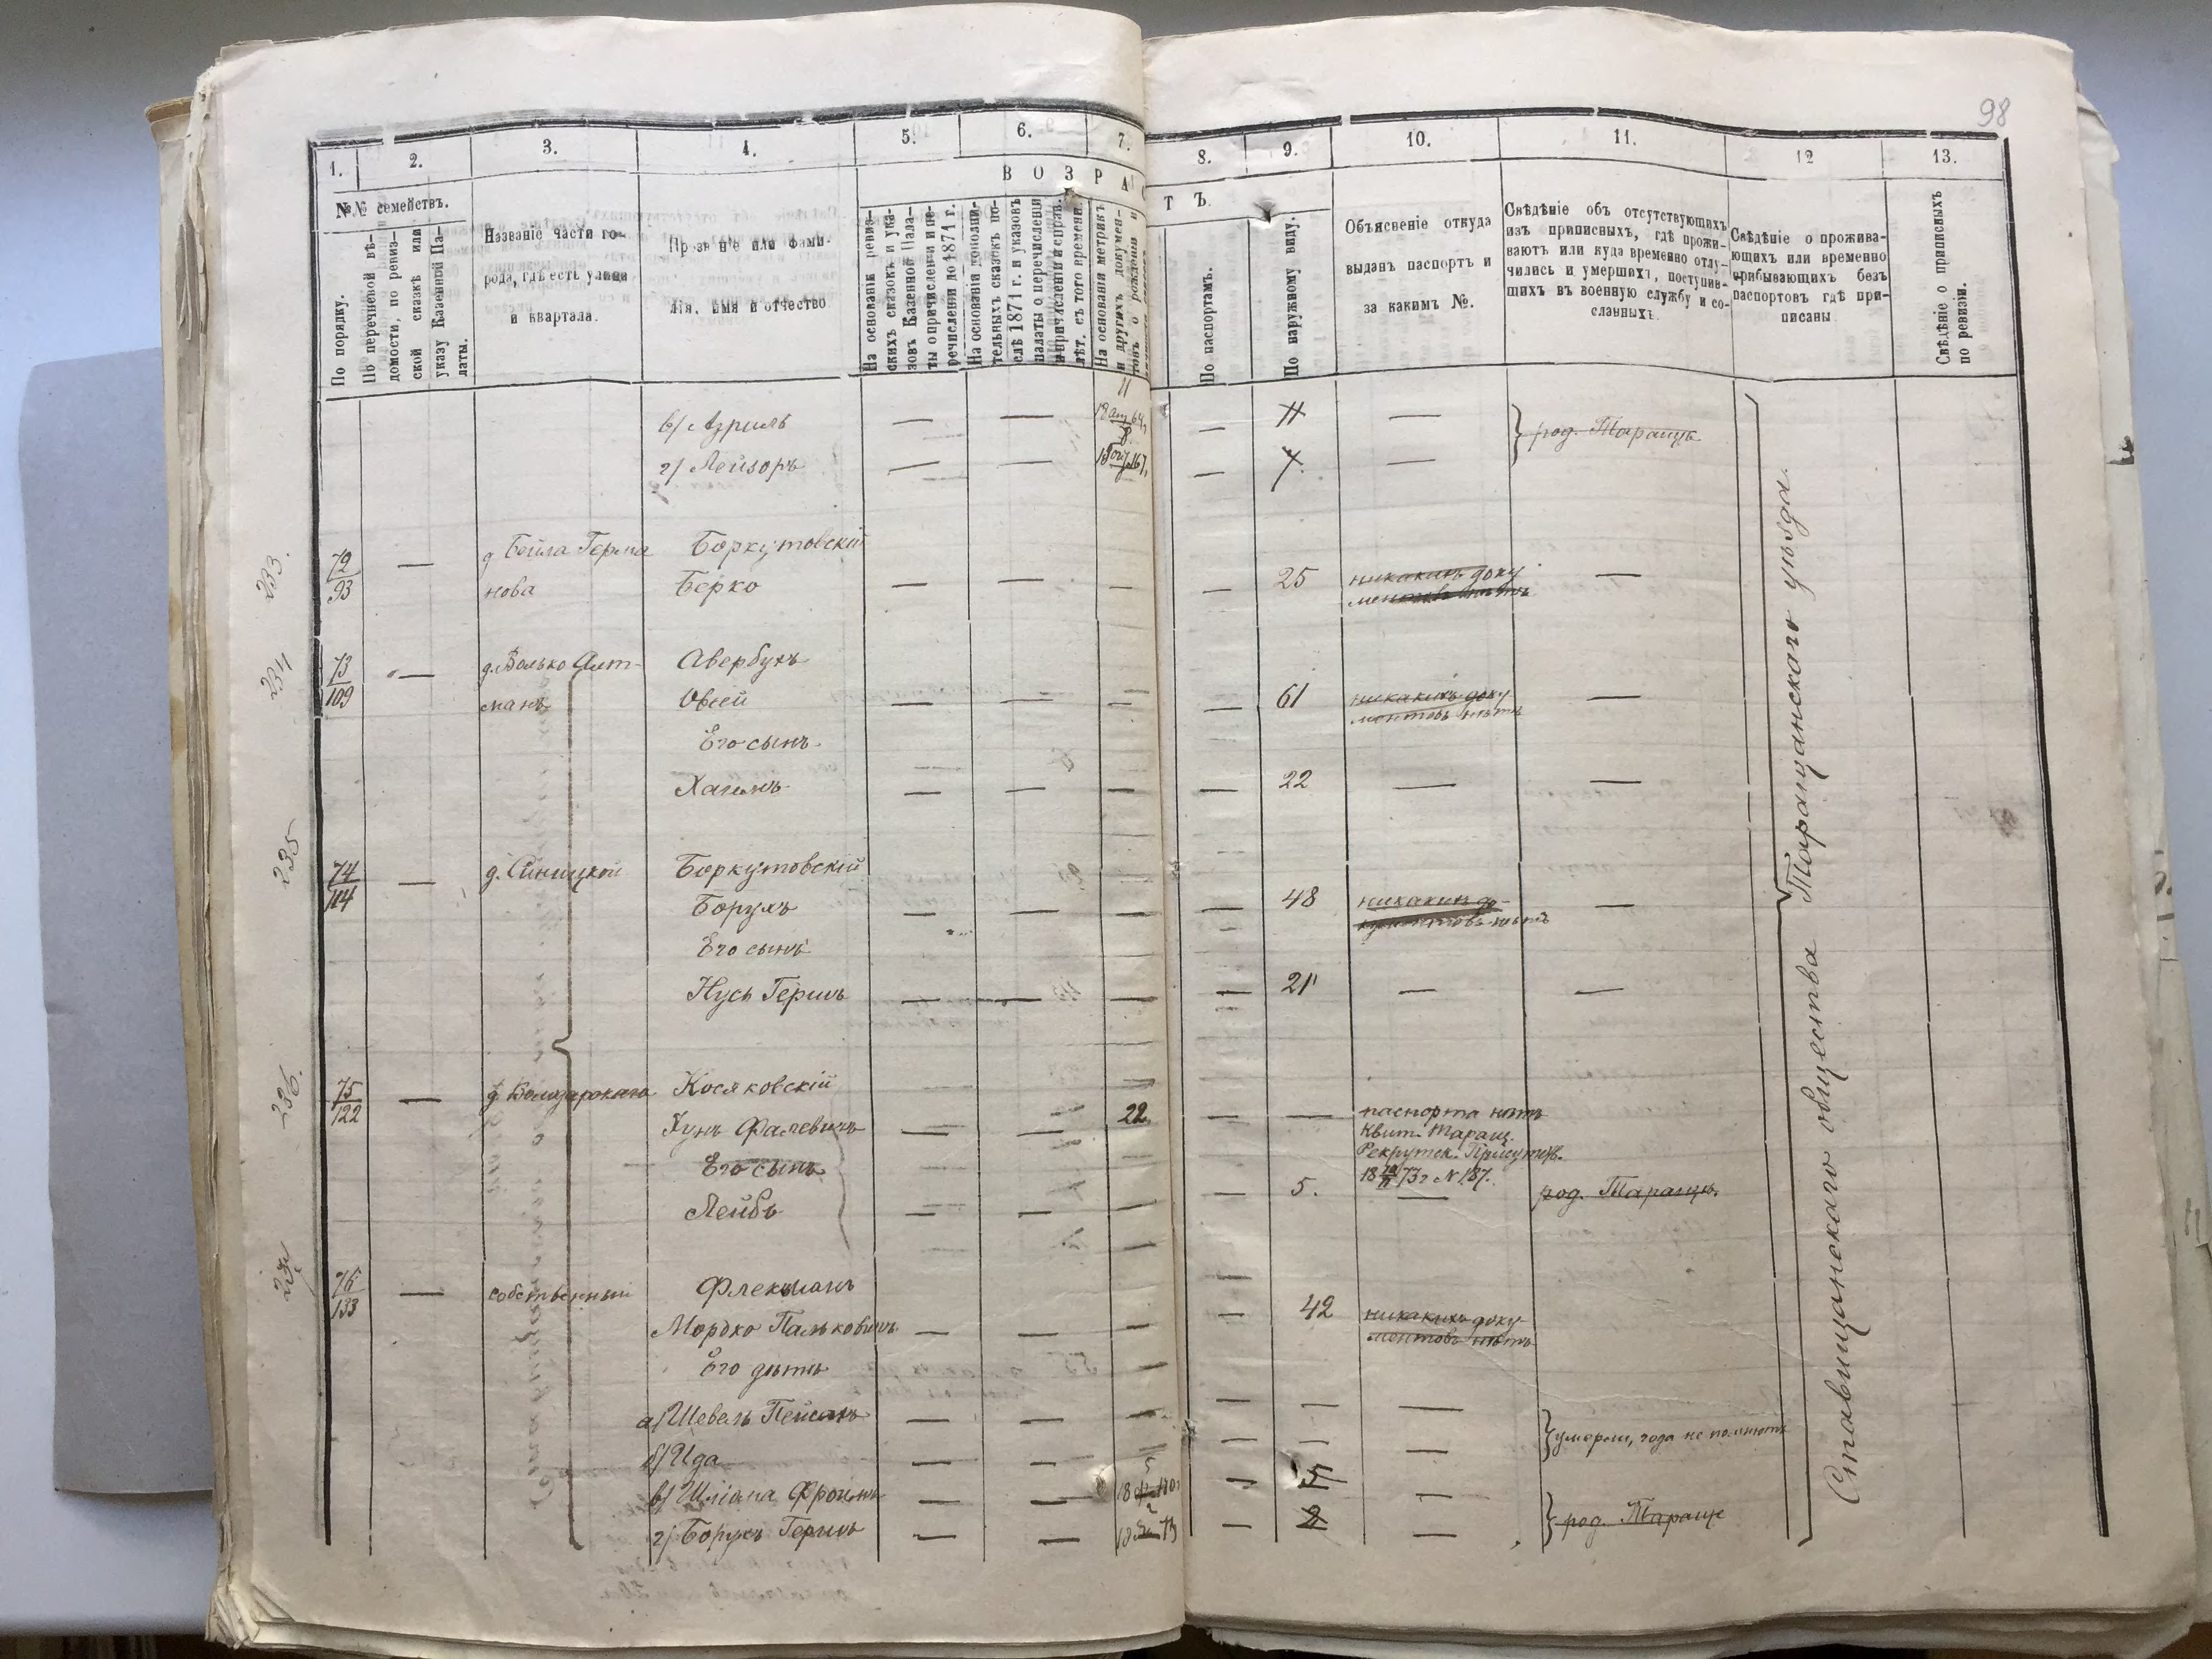 98
1.
2.
3.
4.
5.
6.
7.
8.
9.
10.
11.
12
13.
В О З Р А С
Т Ъ.
№№ семействъ.
По порядку.
По перечневой вѣ-
домости, по ревиз-
ской сказкѣ или
указу Казенной Па-
латы.
Названіе части го-
рода, гдѣ есть улица
и квартала.
Прозваніе или фами-
лія, имя и отчество
На основаніи ревиз-
скихъ сказокъ и ука-
зовъ Казенной Пала-
ты о причисленіи и пе-
речисленіи до 1871 г.
На основаніи дополни-
тельныхъ сказокъ по-
слѣ 1871 г. и указовъ
палаты о перечисленіи
и причисленіи и справ.
лѣт. съ того времени.
На основаніи метрикъ
и другихъ докумен-
товъ о рожденіи и
По паспортамъ.
По наружному виду.
Объясненіе откуда
выданъ паспортъ и
за какимъ №.
Свѣдѣніе объ отсутствующихъ
изъ приписныхъ, гдѣ прожи-
ваютъ или куда временно отлу-
чились и умершихъ, поступив-
шихъ въ военную службу и со-
сланныхъ.
Свѣдѣніе о прожива-
ющихъ или временно
прибывающихъ безъ
паспортовъ гдѣ при-
писаны
Свѣдѣніе о приписныхъ
по ревизіи.
11
в/ Азриль — — — — род. Таращѣ
г/ Лейзоръ — — — —
233.
72
93
— д. Бейла Герма Боркутовскій
нова Берко — — — — 25 никакихъ доку —
ментовъ нѣтъ
234
73
109
— д. Волько Алт- Авербухъ
манъ Овсей — — — — 61 никакихъ доку- —
ментовъ нѣтъ
Его сынъ
Хаимъ — — — — 22 — —
235
74
104
— д. Синицкой Боркутовскій
Борухъ — — — — 48 никакихъ до- —
кументовъ нѣтъ
Его сынъ
Нусь Гершъ — — — — 21 — —
236.
75
122
— Косяковскій
Фалевичъ — — 22 — — паспорта нѣтъ
Квит. Таращ.
Рекрутск. Присутств.
73 г № 187.
Его сынъ
Лейбъ — — — — 5. — род. Таращѣ.
76
133
— собственный Флекманъ
Мордко Пальковичъ — — — — 42 никакихъ доку-
ментовъ нѣтъ
Его дѣти
а/ Шевель Пейсахъ — — — — — — умерли, года не помнятъ
б/ Ида — — — — —
в/ Фроимъ — — — 5 — род. Таращѣ
г/ Борухъ Гершъ — — — 2 —
Ставищанскаго общества Таращанскаго уѣзда.